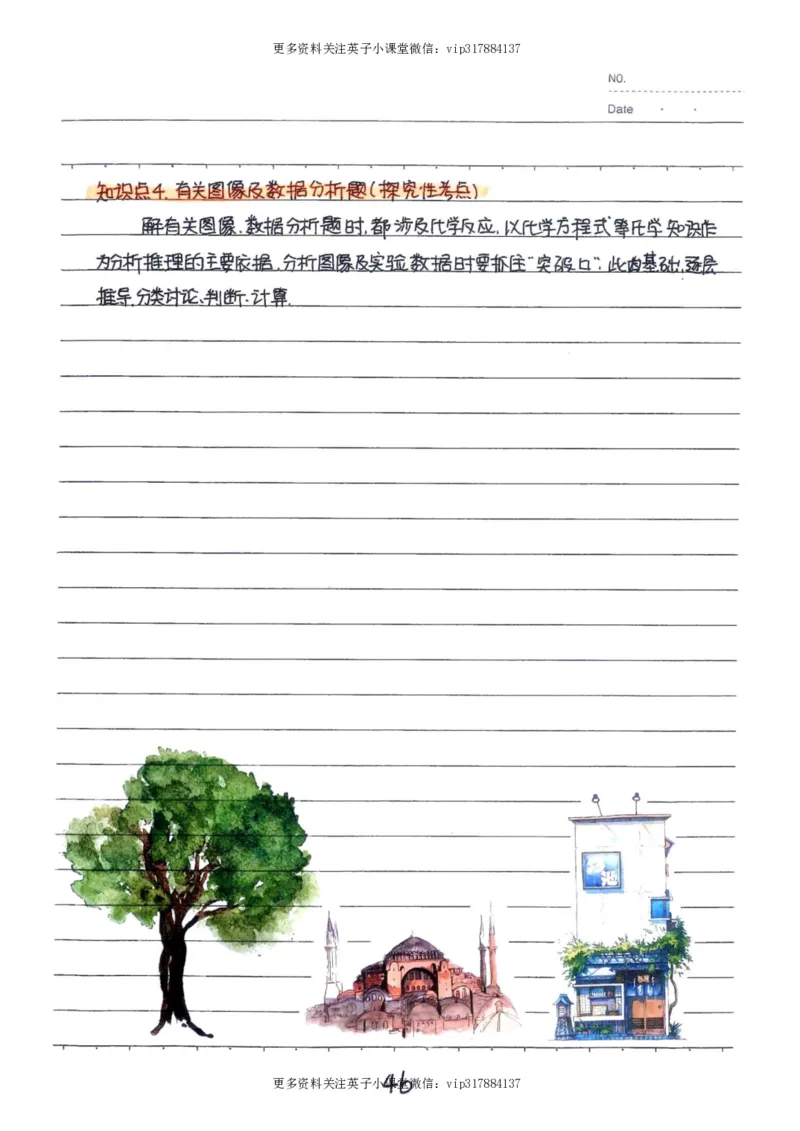 更多资料关注英子小课堂微信：vip317884137
NO.
Date
知识点4.有关图像及数据分析题(探究性考点)
解有关图像、数据分析题时,都涉及化学反应,以化学方程式等化学知识作
为分析推理的主要依据,分析图像及实验数据时要抓住"突破口",此为基础,逐层
推导、分类讨论、判断、计算.
更多资料关注英子小课堂微信：vip317884137
46